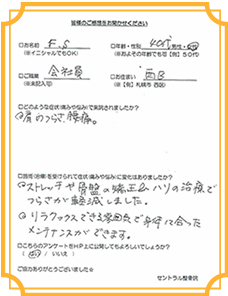 皆様のご感想をお聞かせください
□お名前 F.S □年齢・性別 40代 男性・女性
(※イニシャルでもOK) (※およその年齢でも可【例】50代)
□ご職業 会社員 □お住まい 西区
(※未記入可) (※【例】札幌市 西区)
□どのような症状(痛みや悩み)で来院されましたか?
@肩のつらさ、腰痛。
□施術(治療)を受けられて症状(痛みや悩み)に変化はありましたか?
@ストレッチや骨盤の矯正&ハリの治療で
つらさが軽減しました。
@リラックスできる雰囲気で身体に合った
メンテナンスができます。
□こちらのアンケートをHP上に公開してもよろしいでしょうか?
(はい / いいえ)
ご協力ありがとうございました☆
セントラル整骨院